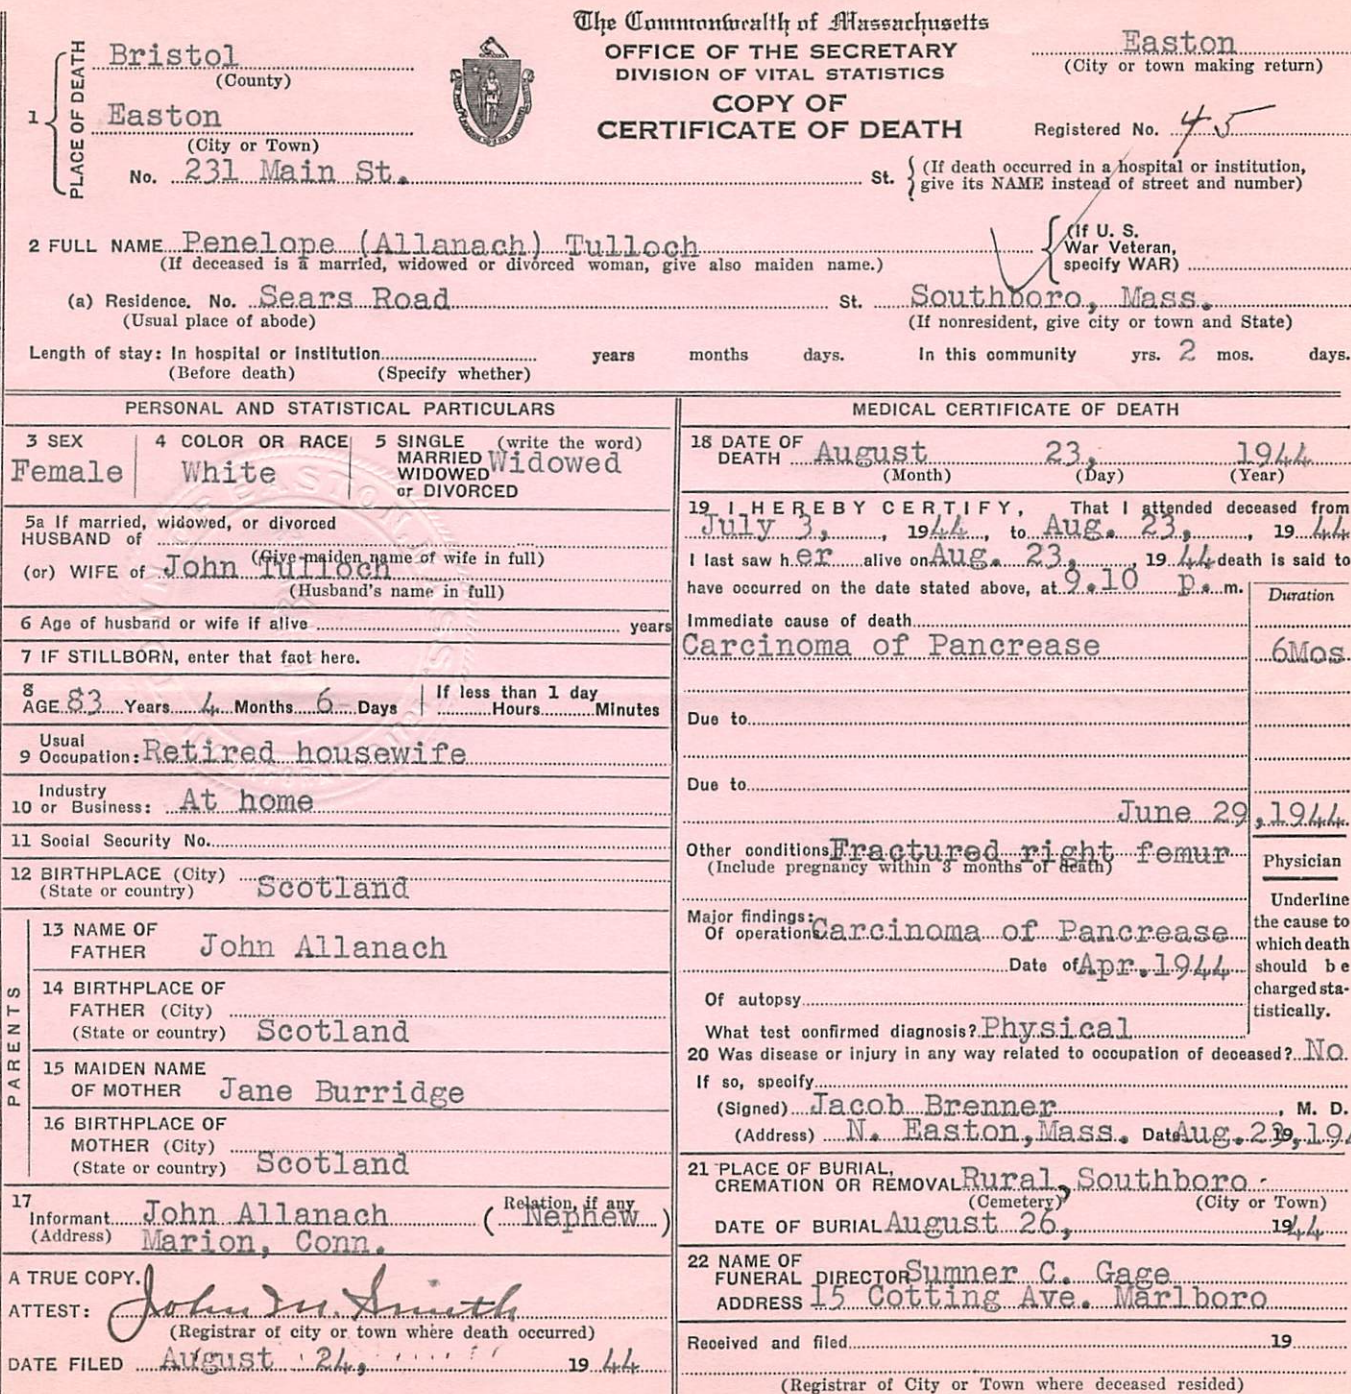 The Commonwealth of Massachusetts
OFFICE OF THE SECRETARY
DIVISION OF VITAL STATISTICS
COPY OF
CERTIFICATE OF DEATH
Easton
(City or town making return)
Registered No. 45
1 PLACE OF DEATH
Bristol
(County)
Easton
(City or Town)
No. 231 Main St. St. { (If death occurred in a hospital or institution,
give its NAME instead of street and number)
2 FULL NAME Penelope (Allanach) Tulloch
(If deceased is a married, widowed or divorced woman, give also maiden name.)
(If U. S.
War Veteran,
specify WAR)
(a) Residence. No. Sears Road St. Southboro, Mass.
(Usual place of abode) (If nonresident, give city or town and State)
Length of stay: In hospital or institution years months days. In this community yrs. 2 mos. days.
(Before death) (Specify whether)
PERSONAL AND STATISTICAL PARTICULARS
3 SEX
Female
4 COLOR OR RACE
White
5 SINGLE (write the word)
MARRIED
WIDOWED Widowed
or DIVORCED
5a If married, widowed, or divorced
HUSBAND of
(Give maiden name of wife in full)
(or) WIFE of John Tulloch
(Husband's name in full)
6 Age of husband or wife if alive years
7 IF STILLBORN, enter that fact here.
8 AGE 83 Years 4 Months 6 Days If less than 1 day
Hours Minutes
9 Usual Occupation: Retired housewife
10 Industry or Business: At home
11 Social Security No.
12 BIRTHPLACE (City)
(State or country) Scotland
PARENTS
13 NAME OF
FATHER John Allanach
14 BIRTHPLACE OF
FATHER (City)
(State or country) Scotland
15 MAIDEN NAME
OF MOTHER Jane Burridge
16 BIRTHPLACE OF
MOTHER (City)
(State or country) Scotland
17 Informant John Allanach (Relation, if any Nephew)
(Address) Marion, Conn.
A TRUE COPY.
ATTEST: John M. Smith
(Registrar of city or town where death occurred)
DATE FILED August 24, 19 44
MEDICAL CERTIFICATE OF DEATH
18 DATE OF
DEATH August 23, 1944
(Month) (Day) (Year)
19 I HEREBY CERTIFY, That I attended deceased from
July 3, 1944, to Aug. 23, 19 44
I last saw her alive on Aug. 23, 19 44 death is said to
have occurred on the date stated above, at 9.10 p. m.
Duration
Immediate cause of death
Carcinoma of Pancrease 6Mos
Due to
Due to
June 29,1944
Other conditions Fractured right femur
(Include pregnancy within 3 months of death)
Physician
Underline
the cause to
which death
should be
charged sta-
tistically.
Major findings:
Of operations Carcinoma of Pancrease
Date of Apr.1944
Of autopsy
What test confirmed diagnosis? Physical
20 Was disease or injury in any way related to occupation of deceased? No
If so, specify
(Signed) Jacob Brenner, M. D.
(Address) N. Easton,Mass. Date Aug.
21 PLACE OF BURIAL,
CREMATION OR REMOVAL Rural, Southboro
(Cemetery) (City or Town)
DATE OF BURIAL August 26, 1944
22 NAME OF
FUNERAL DIRECTOR Sumner C. Gage
ADDRESS 15 Cotting Ave. Marlboro
Received and filed 19
(Registrar of City or Town where deceased resided)